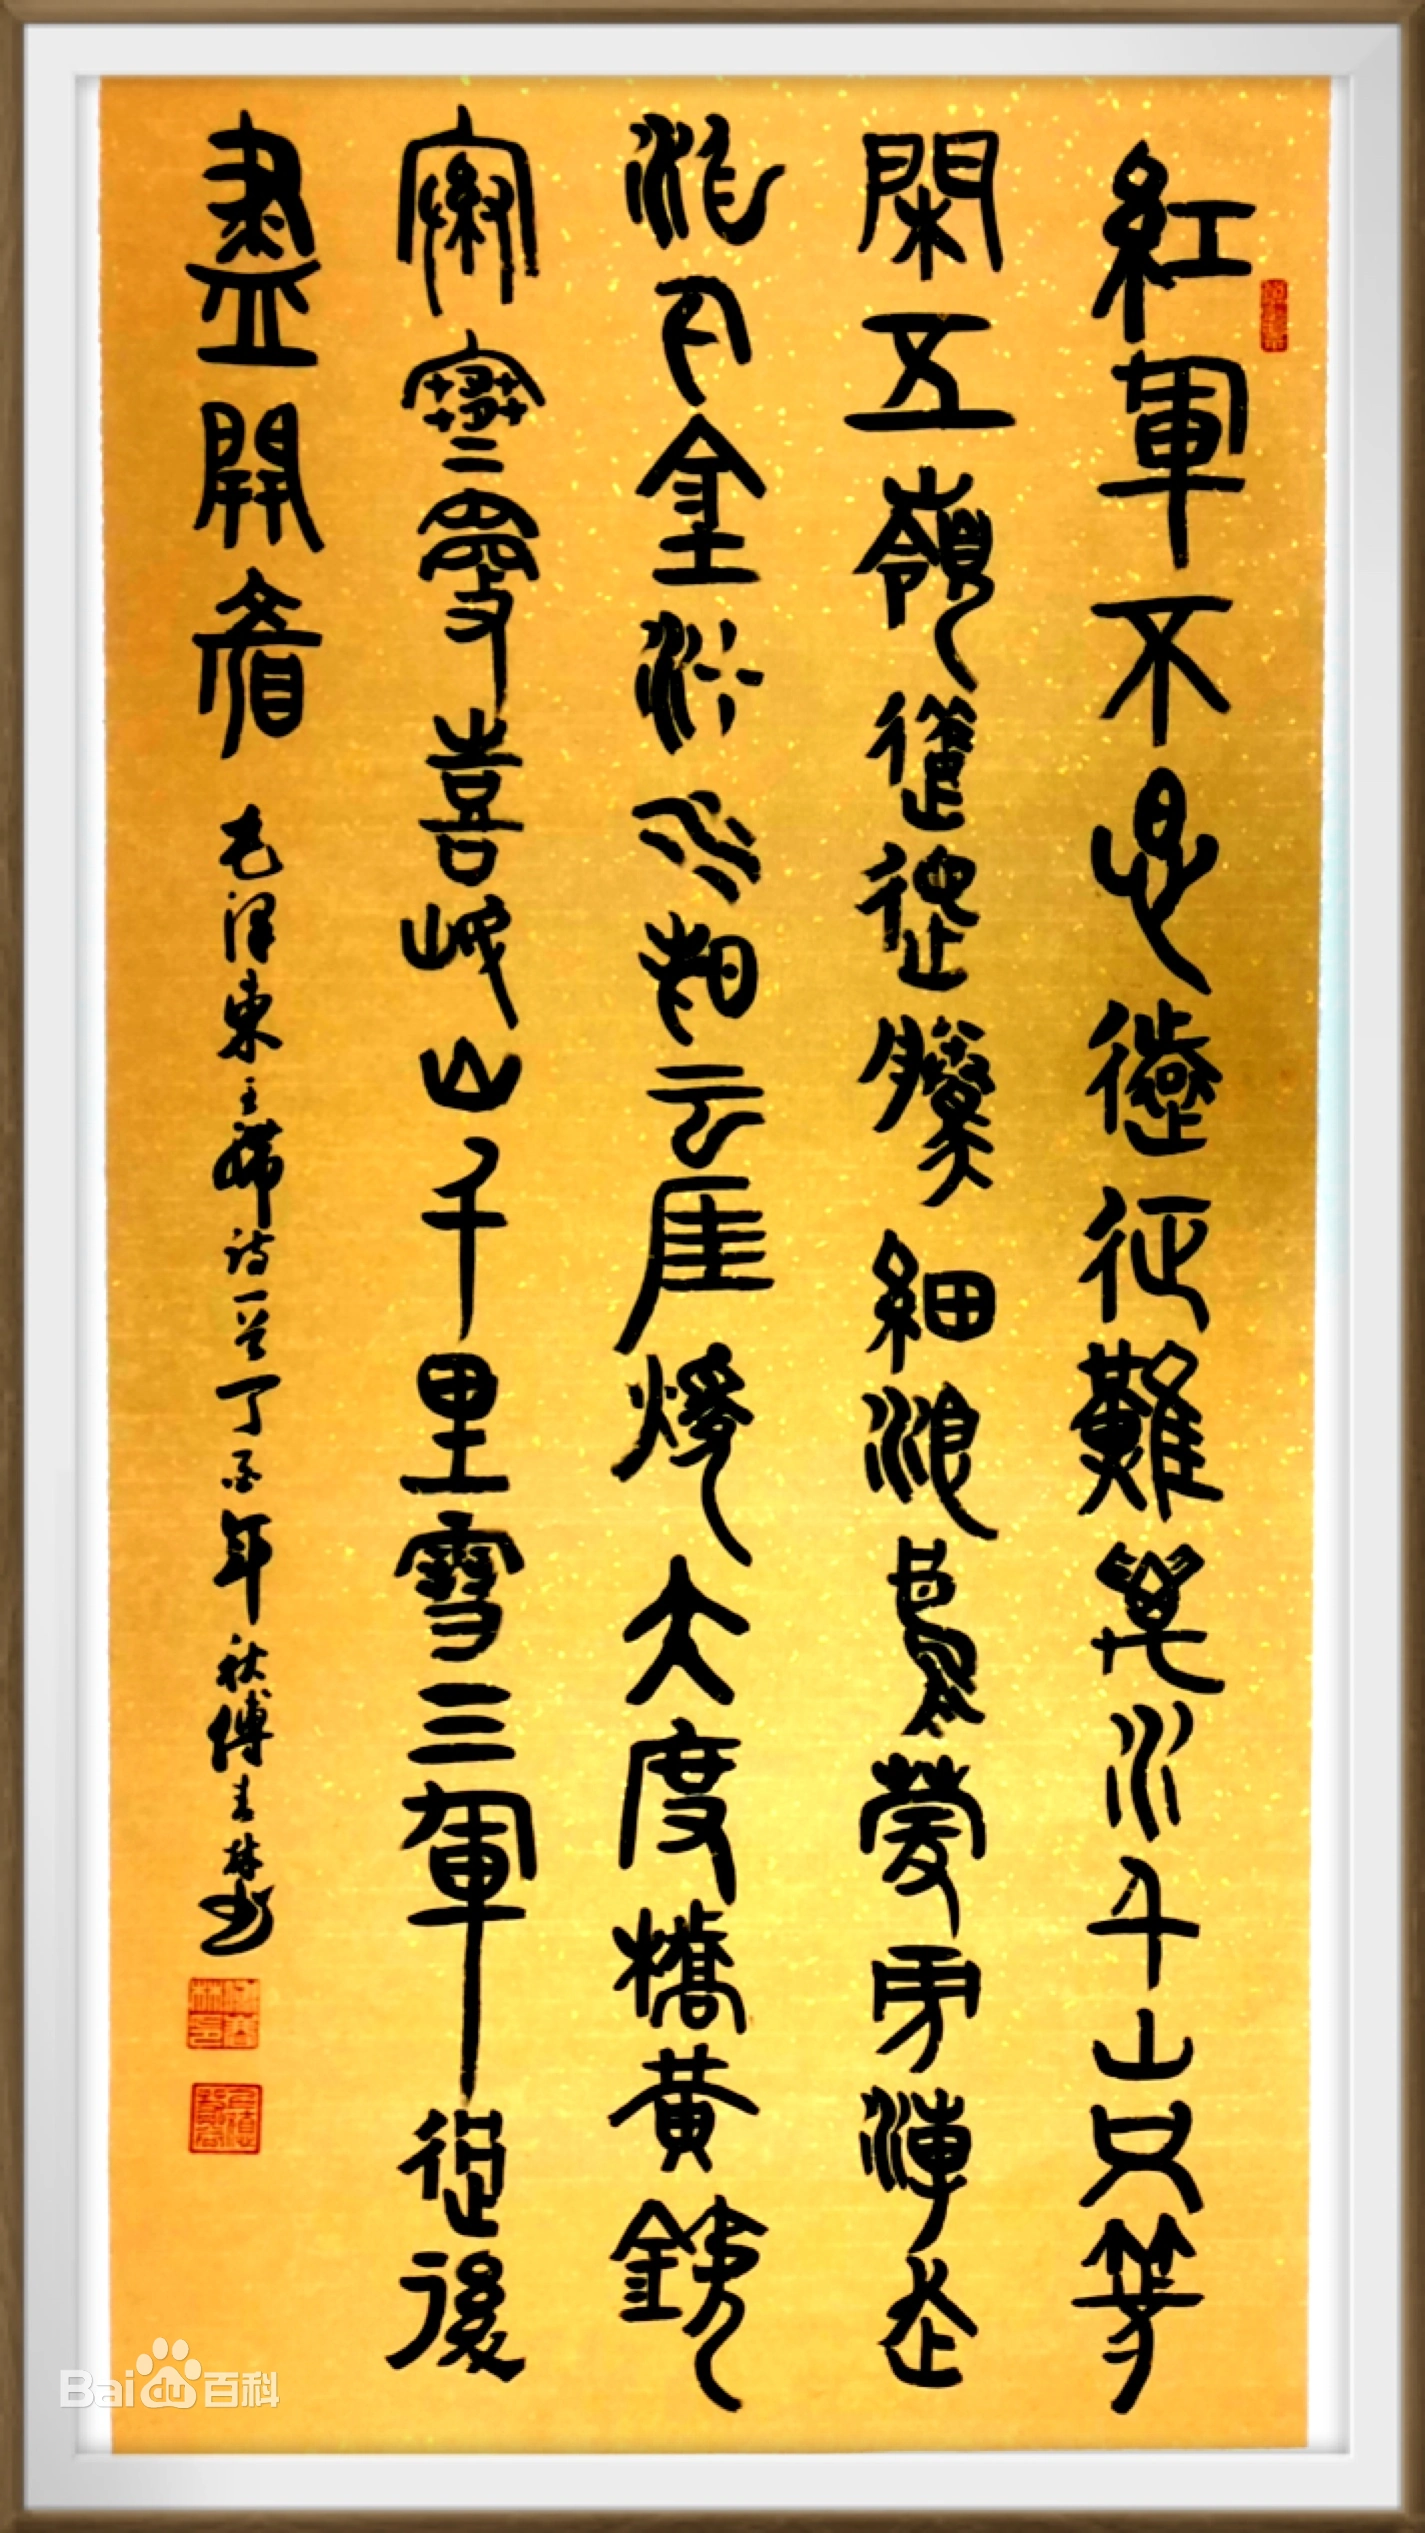 紅軍不怕遠征難萬水千山只等
閑五嶺逶迤騰細浪烏蒙雱溥走
泥丸金沙水拍云崖煖大度橋黃銕
索寒更喜岷山千里雪三軍過後
盡開顏
毛澤東主席詩一首丁酉年秋傅林书
Bai百科